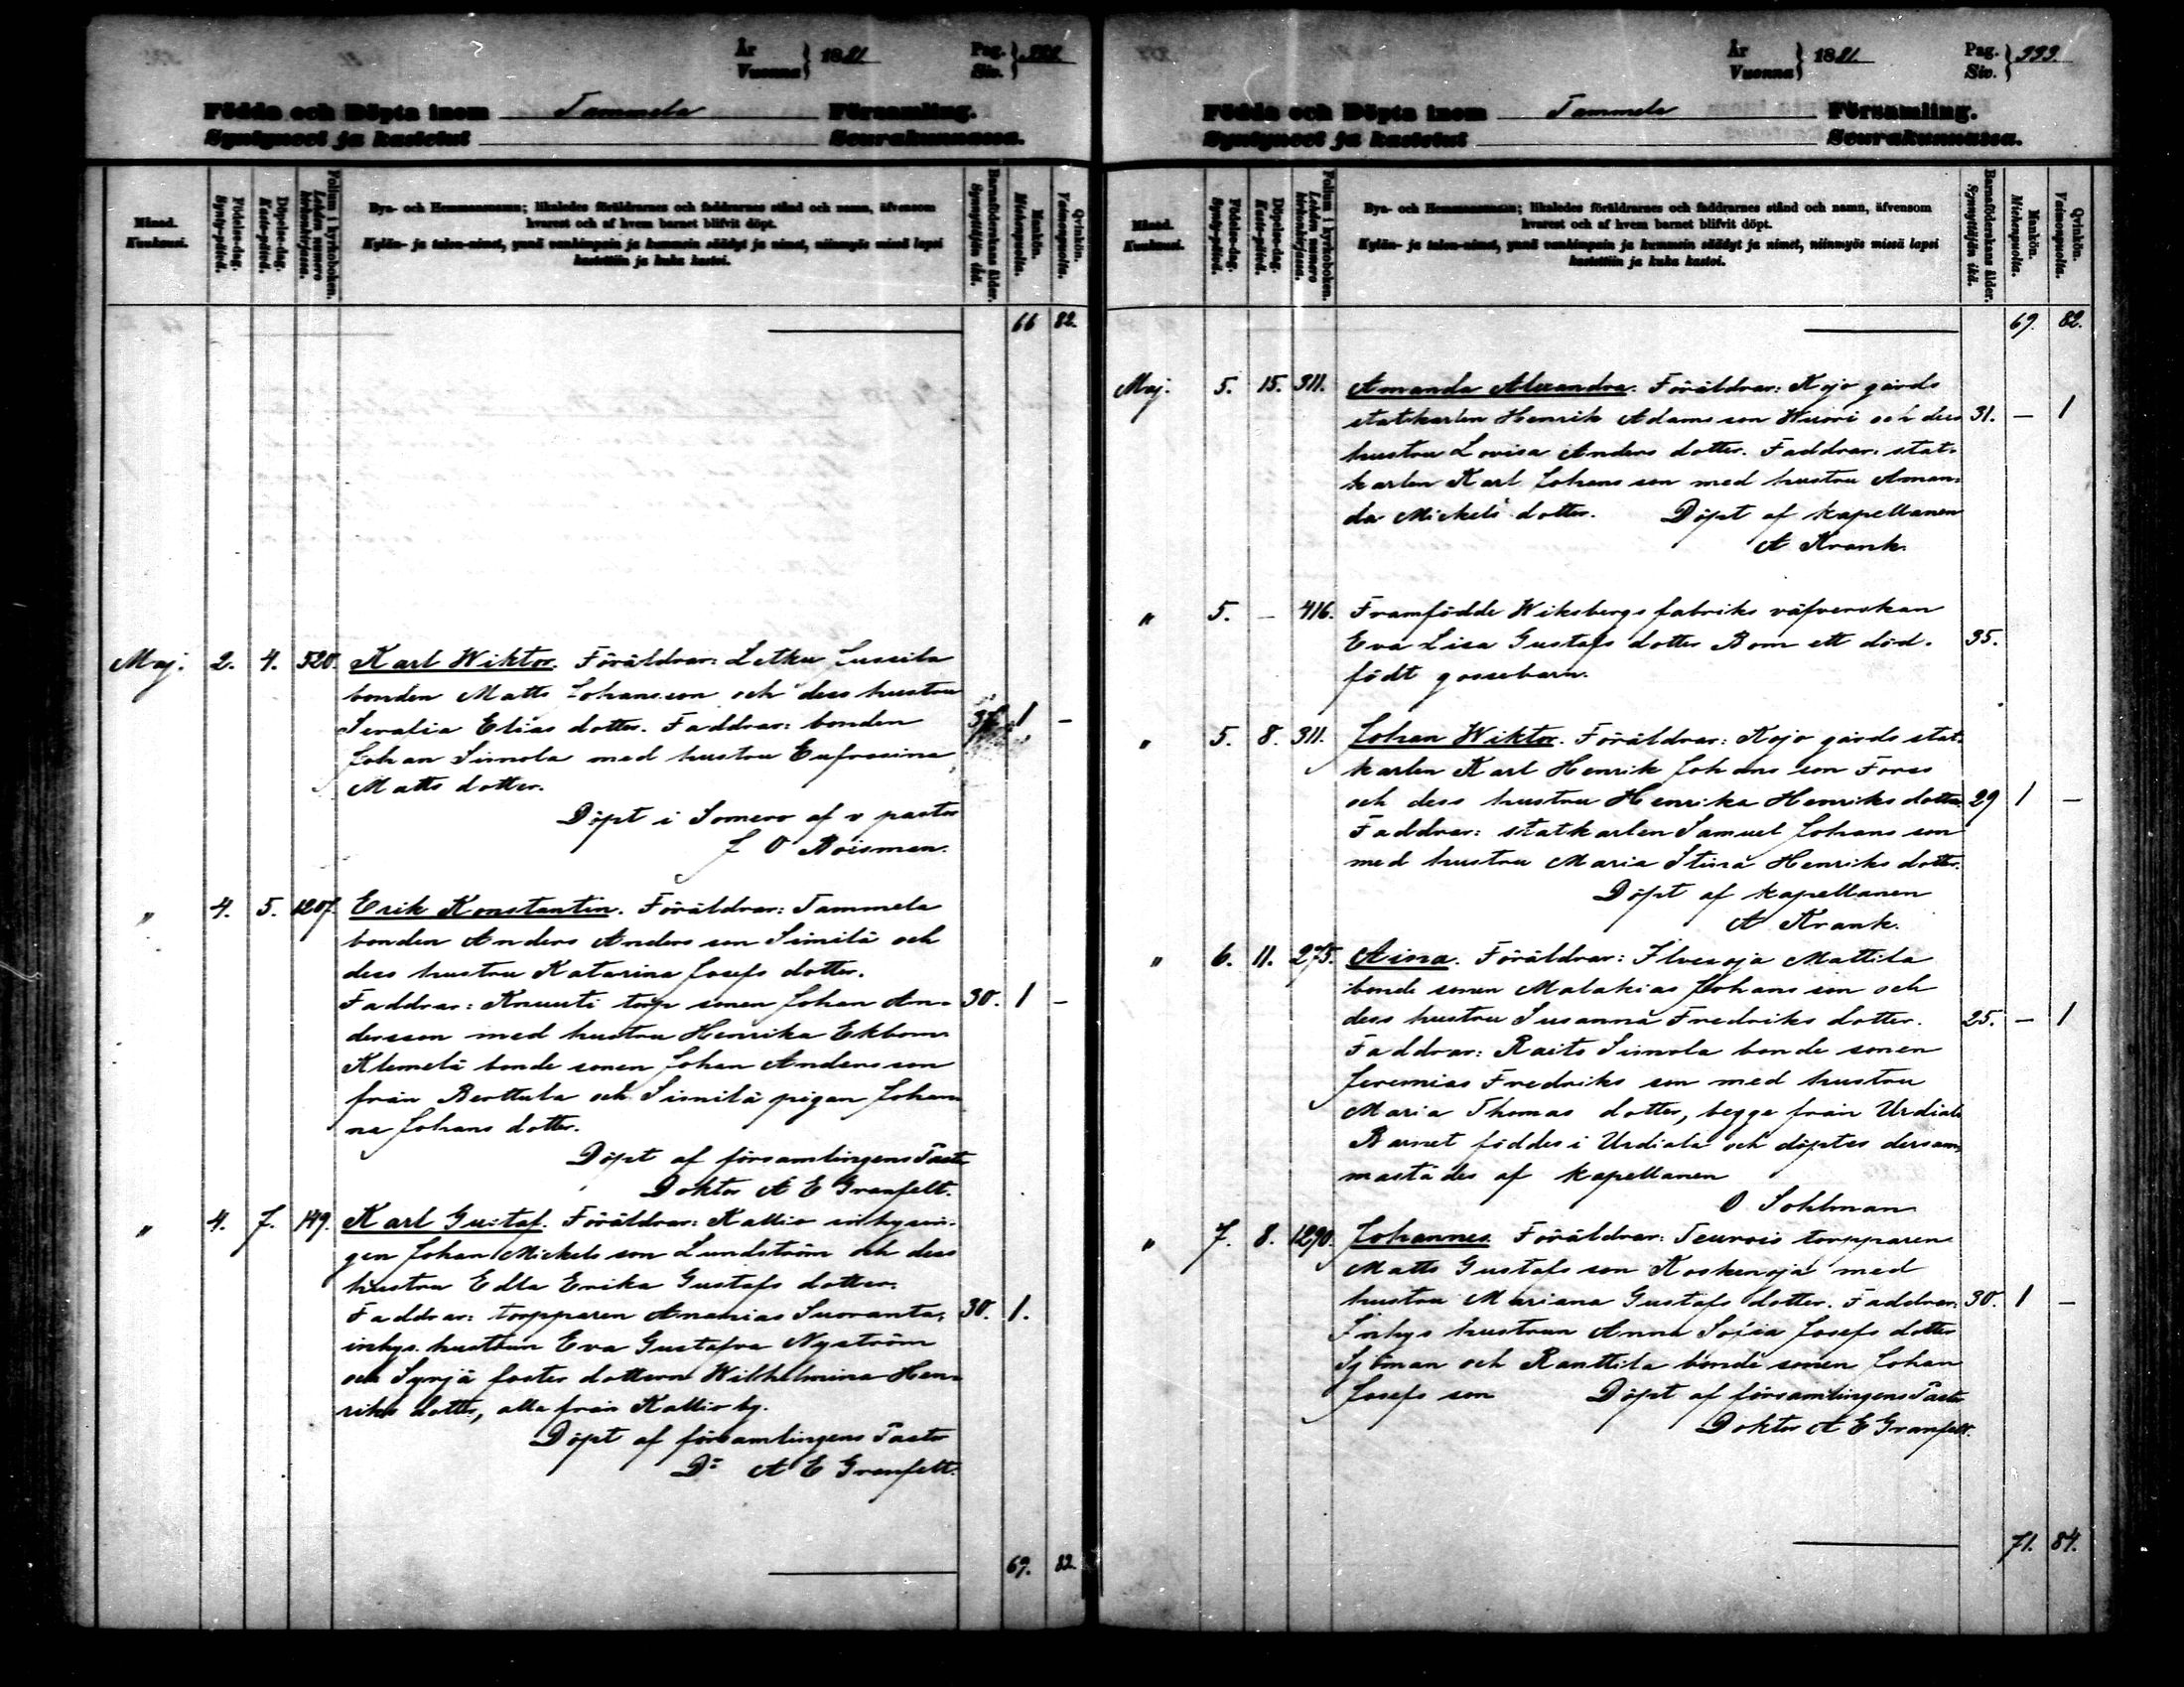 År
Vuonna } 1881
Pag.
Siv. }
Födda och Döpta inom Tammela Församling.
Syntyneet ja kastetut Seurakunnassa.
Månad.
Kuukausi.
Födelse-dag.
Synty-päivä.
Döpelse-dag.
Kaste-päivä.
Folium i kyrkoboken.
Lehden numero kirkonkirjassa.
Bya- och Hemmansnamn; likaledes föräldrarnes och faddrarnes stånd och namn, äfvensom
hvarest och af hvem barnet blifvit döpt.
Kylän- ja talon-nimet, ynnä vanhimpain ja kummein säädyt ja nimet, niinmyös missä lapsi
kastettiin ja kuka kastoi.
Barnaföderskans ålder.
Synnyttäjän ikä.
Mankön.
Miehenpuolia.
Qvinkön.
Vaimonpuolia.
66 82.
Maj. 2. 4. 520. Karl Wiktor. Föräldrar: Letku Jussila
bonden Matts Johansson och dess hustru
Serafia Elias dotter. Faddrar: bonden 1 –
Johan Simola med hustru Eufrosina
Matts dotter.
Döpt i Somero af v pastor
J O Roisman.
" 4. 5. 1207. Erik Konstantin. Föräldrar: Tammela
bonden Anders Anders son Similä och
dess hustru Katarina Josefs dotter.
Faddrar: Knuuti torp sonen Johan An- 30. 1 –
dersson med hustru Henrika Ekbom
Klemelä bonde sonen Johan Andersson
från Porttula och Similä pigan Johan
na Johans dotter.
Döpt af församlingens Pastor
Doktor A E Granfelt.
" 4. 7. 149. Karl Gustaf. Föräldrar: Kallio inhysin-
gen Johan Mickels son Lundström och dess
hustru Edla Erika Gustafs dotter.
Faddrar: torpparen Ananias Suoranta, 30. 1.
inhys. hustrun Eva Gustafva Nyström
och Syrjä foster dottern Wilhelmina Hen-
riks dotter, alla från Kallio by.
Döpt af församlingens Pastor
Dr A E Granfelt.
69. 82.
År
Vuonna } 1881
Pag.
Siv. } 999
Födda och Döpta inom Tammela Församling.
Syntyneet ja kastetut Seurakunnassa.
Månad.
Kuukausi.
Födelse-dag.
Synty-päivä.
Döpelse-dag.
Kaste-päivä.
Folium i kyrkoboken.
Lehden numero kirkonkirjassa.
Bya- och Hemmansnamn; likaledes föräldrarnes och faddrarnes stånd och namn, äfvensom
hvarest och af hvem barnet blifvit döpt.
Kylän- ja talon-nimet, ynnä vanhimpain ja kummein säädyt ja nimet, niinmyös missä lapsi
kastettiin ja kuka kastoi.
Barnaföderskans ålder.
Synnyttäjän ikä.
Mankön.
Miehenpuolia.
Qvinkön.
Vaimonpuolia.
69. 82.
Maj. 5. 15. 311. Amanda Alexandra. Föräldrar: Kojo gårds
statkarlen Henrik Adams son Wuori och dess 31. – 1
hustru Lovisa Anders dotter. Faddrar: stat-
karlen Karl Johans son med hustru Aman-
da Mickels dotter. Döpt af kapellanen
A Krank.
" 5. – 416. Framfödde Wiksbergs fabriks väfverskan
Eva Lisa Gustafs dotter Bom ett död- 35.
födt gossebarn.
" 5. 8. 311. Johan Wiktor. Föräldrar: Kojo gårds stat-
karlen Karl Henrik Johans son Forss
och dess hustru Henrika Henriks dotter 29 1 –
Faddrar: statkarlen Samuel Johans son
med hustru Maria Stina Henriks dotter.
Döpt af kapellanen
A Krank.
" 6. 11. 275. Aina. Föräldrar: Ilvesoja Mattila
bonde sonen Malakias Johans son och
dess hustru Susanna Fredriks dotter. 25. – 1
Faddrar: Raito Simola bonde sonen
Jeremias Fredriks son med hustru
Maria Thomas dotter, begge från Urdiala
Barnet föddes i Urdiala och döptes dersam-
mastädes af kapellanen
O Sohlman
" 7. 8. 1290. Johannes. Föräldrar: Teurois torpparen
Matts Gustafs son Koskenoja med
hustru Mariana Gustafs dotter. Faddrar: 30. 1 –
Inhys hustrun Anna Sofia Josefs dotter
Sjöman och Ranttila bonde sonen Johan
Josefs son Döpt af församlingens Pastor
Doktor A E Granfelt.
71. 84.